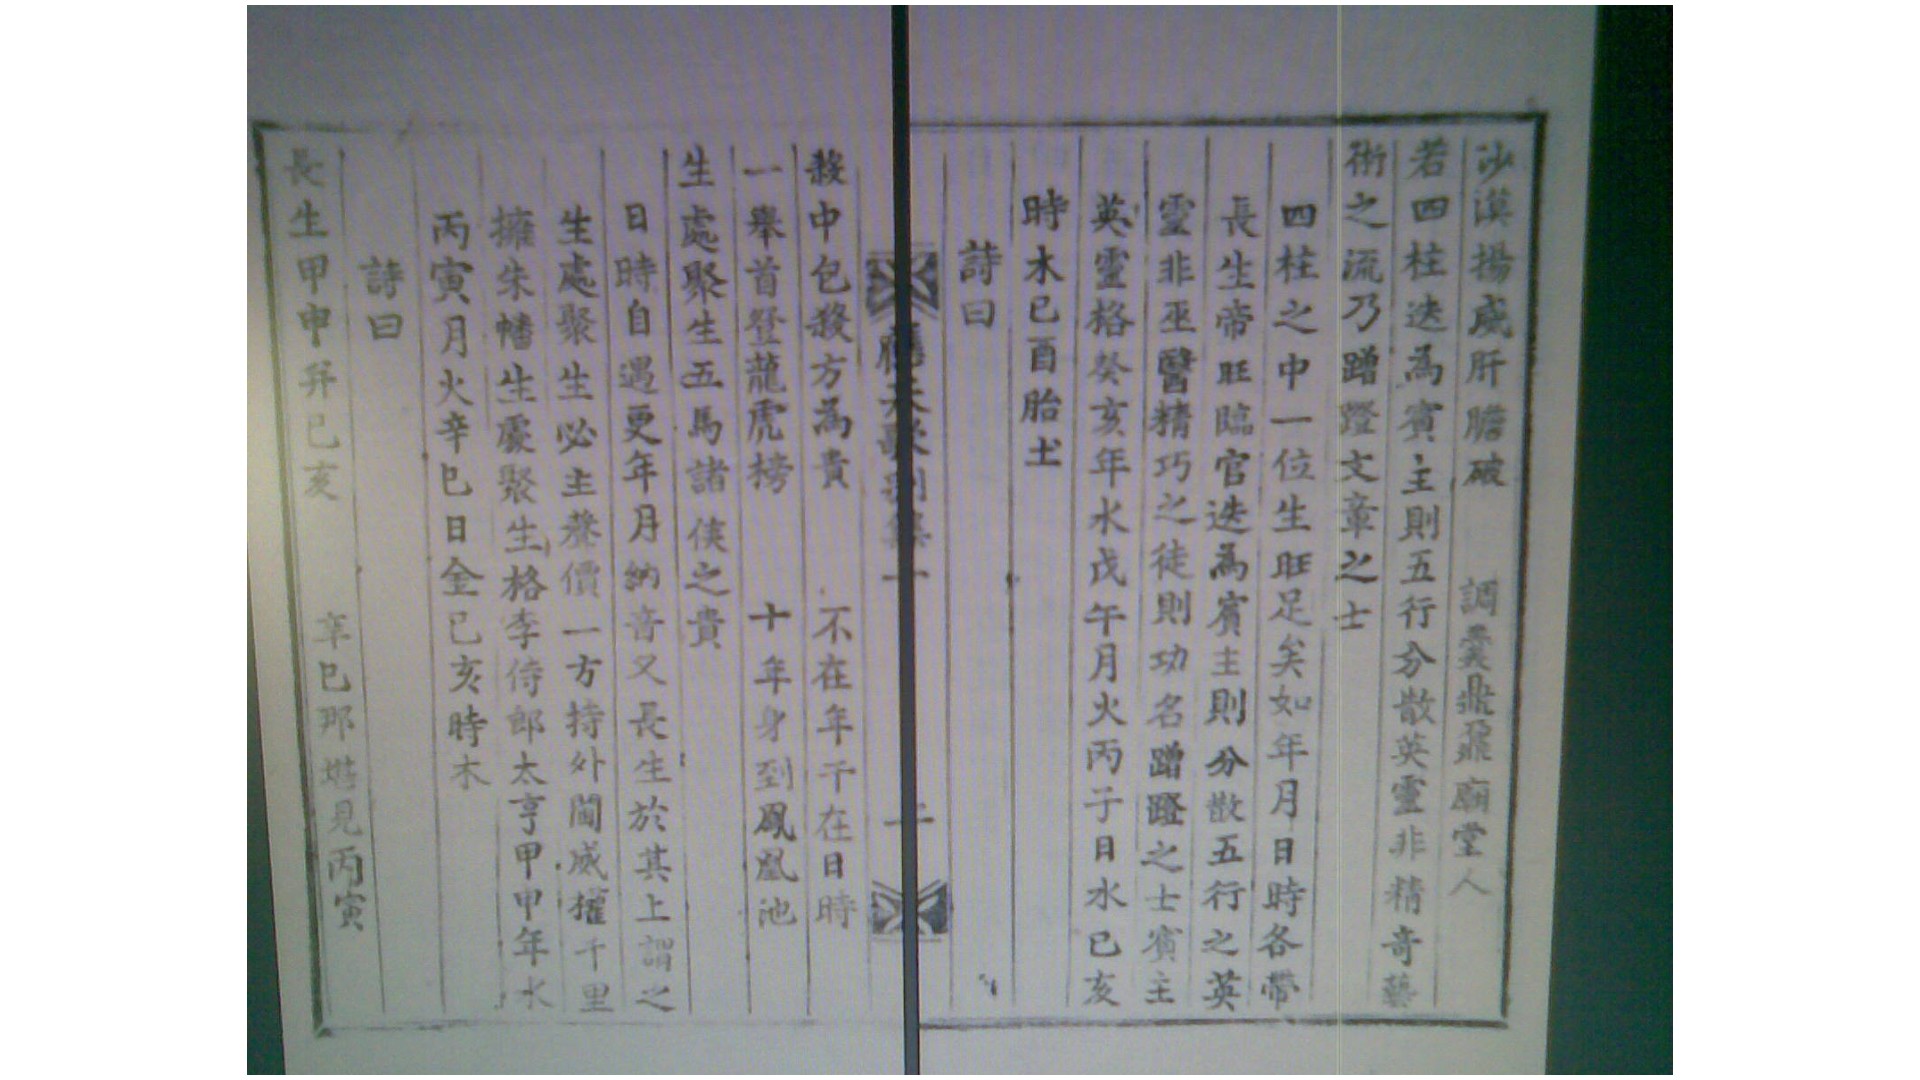 沙漠揚威肝膽破 調羹鼎鼐廟堂人
若四柱迭為賓主則五行分散英靈非精奇藝
術之流乃蹭蹬文章之士
四柱之中一位生旺足矣如年月日時各帶
長生帝旺臨官迭為賓主則分散五行之英
靈非巫醫精巧之徒則功名蹭蹬之士賓主
英靈格癸亥年水戊午月火丙子日水己亥
時木己酉胎土
詩曰
殺中包殺方為貴 不在年干在日時
一舉首登龍虎榜 十年身到鳳凰池
生處聚生五馬諸侯之貴
日時自遇更年月納音又長生於其上謂之
生處聚生必主聲價一方持外閫威權千里
擁朱幡生處聚生格李侍郎太亨甲申年水
丙寅月火辛巳日金己亥時木
詩曰
長生甲申并己亥 辛巳那堪見丙寅